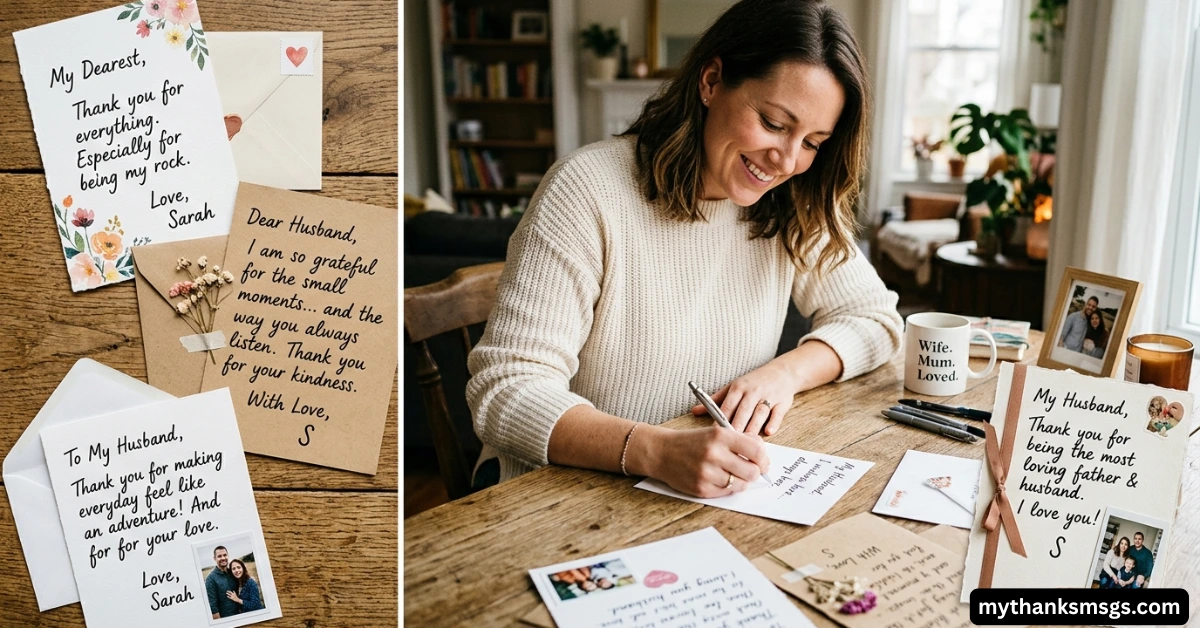 My Dearest,
Thank you for
everything.
Especially for
being my rock.
Love,
Sarah
Dear Husband,
I am so grateful
for the small
moments... and the
way you always
listen. Thank you
for your kindness.
With Love,
S
To My Husband,
Thank you for making
everyday feel like
an adventure! And
for for your love.
Love,
Sarah
Wife.
Mum.
Loved.
My Husband,
Thank you for
being the most
loving father &
husband.
I love you!
S
My Husband,
always
S
With Love,
mythanksmsgs.com